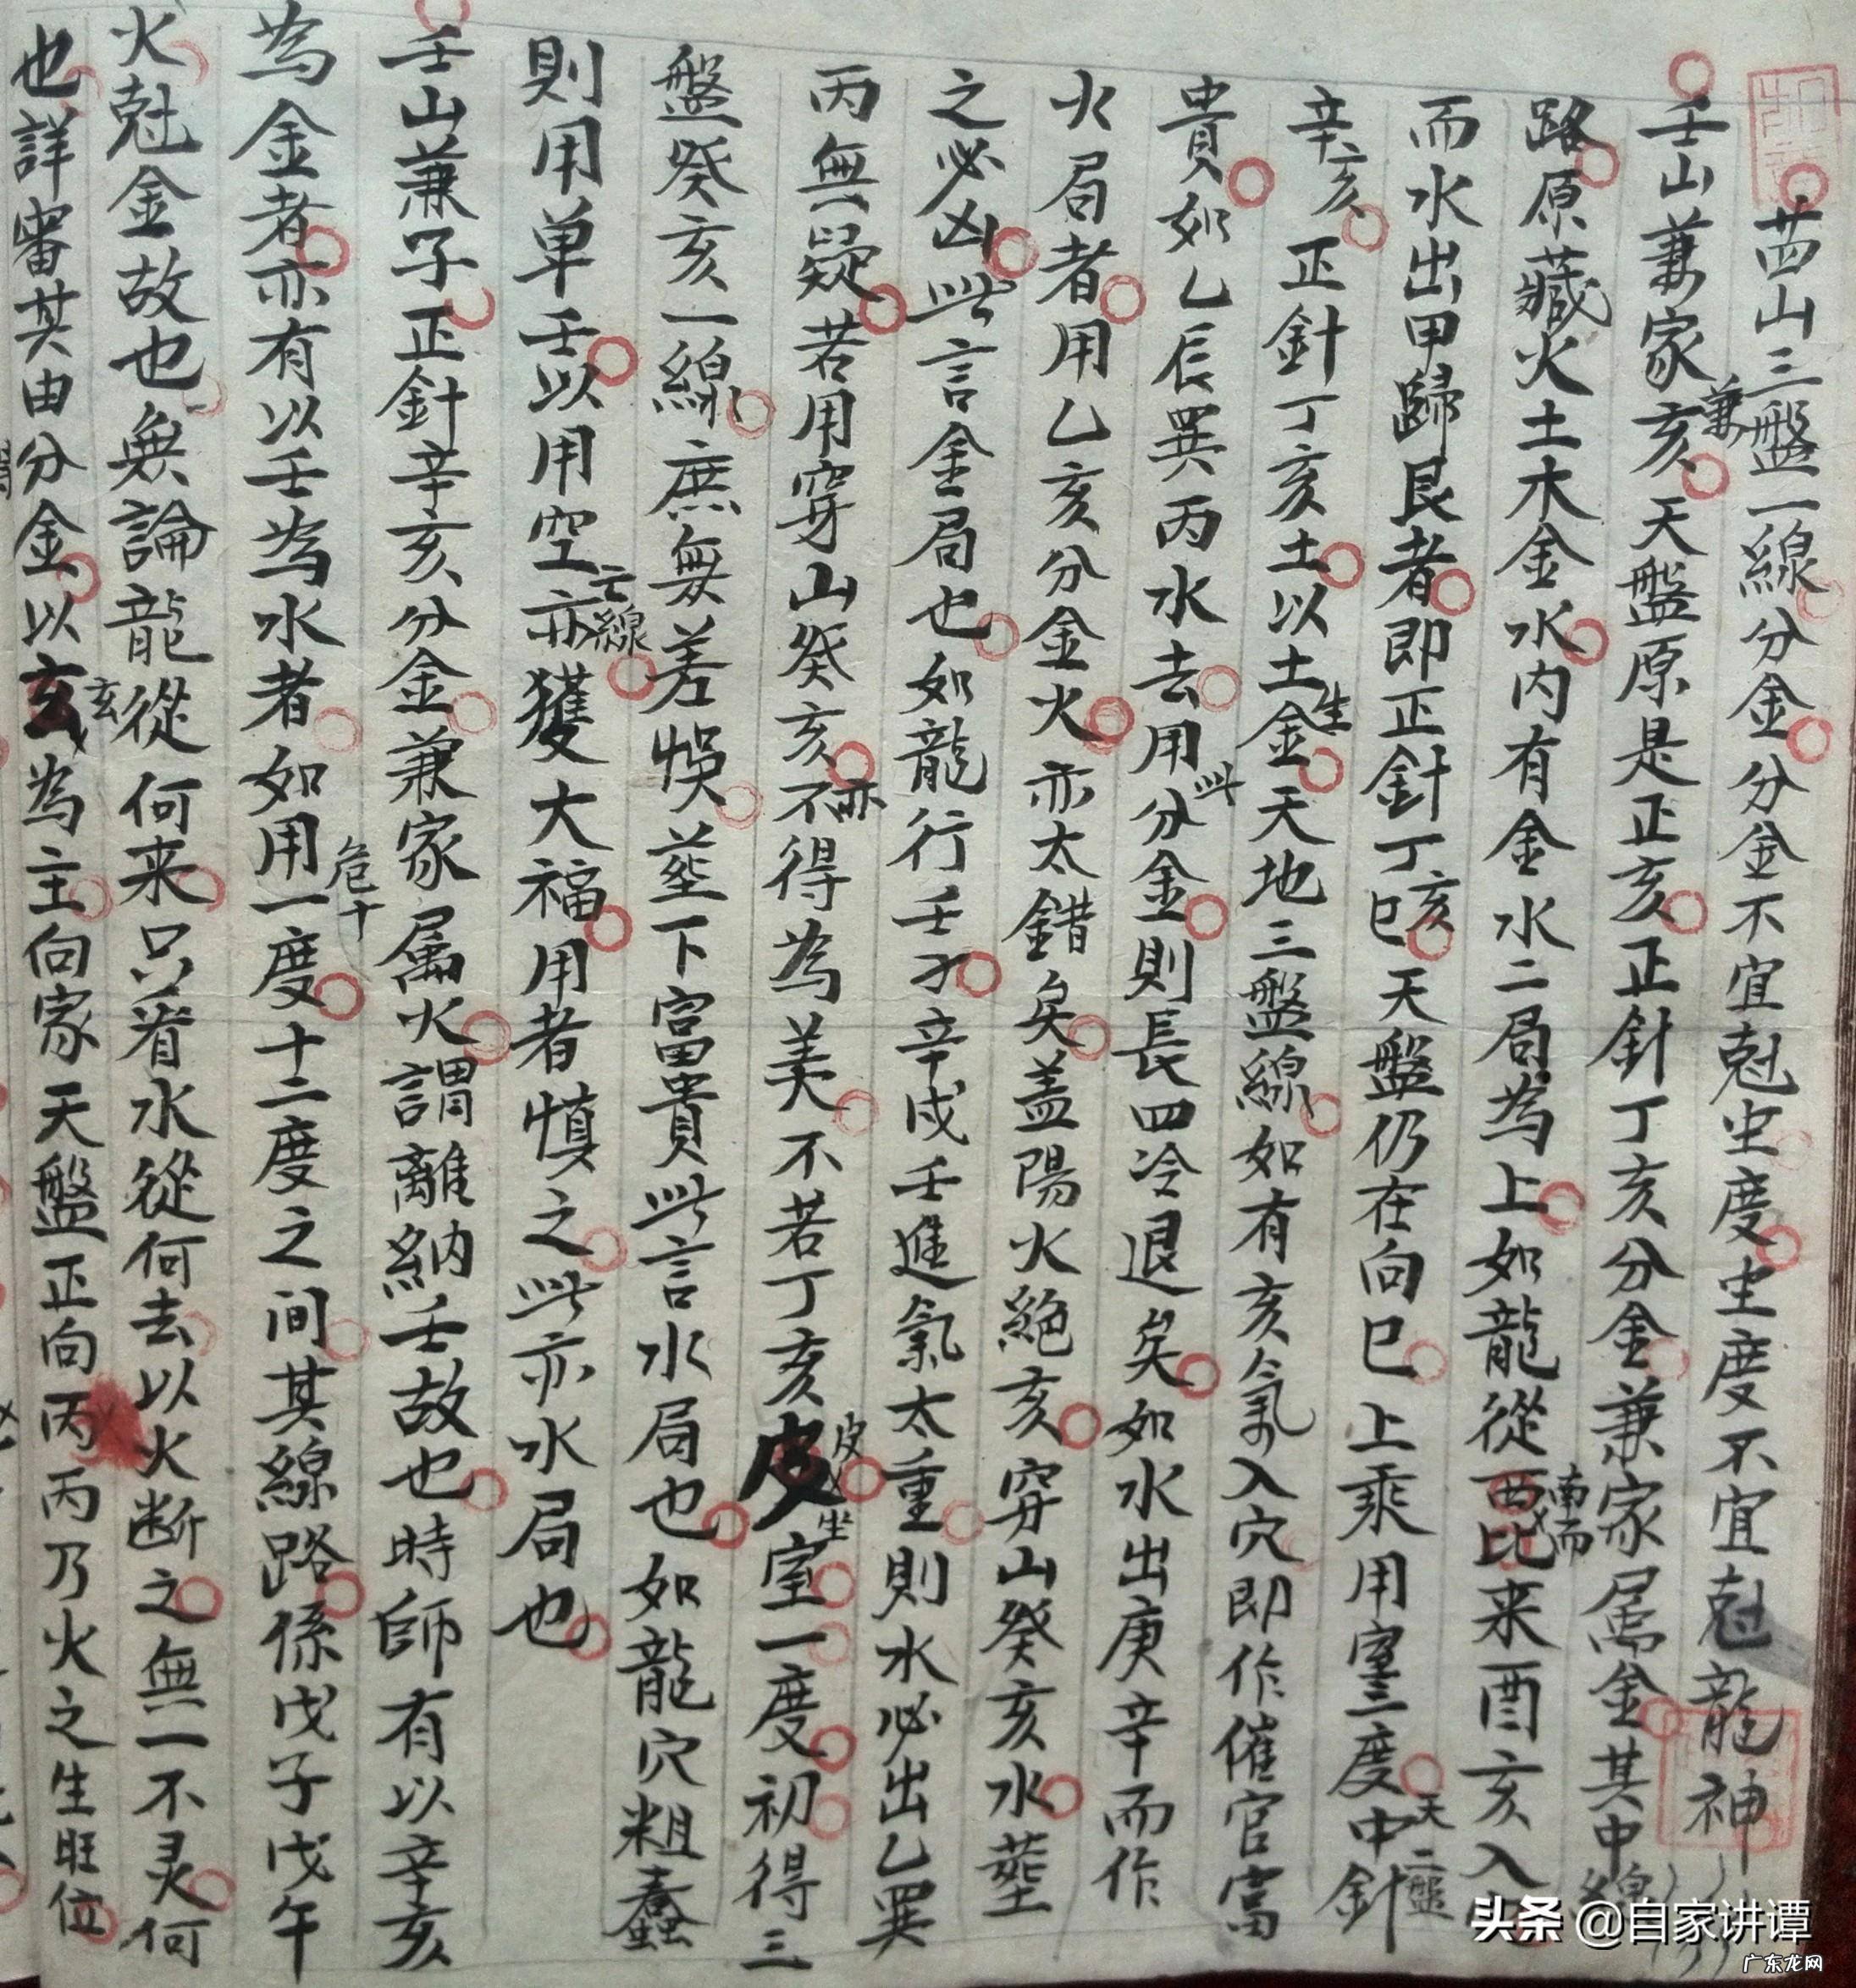 茜山三盤一線分金分金不宜尅坐度坐度不宜尅龍神
壬山兼家亥天盤原是正亥正針丁亥分金兼家屬金其中線
兼
路原藏火土木金水内有金水二局為上如龍從西北来酉亥入
南而
而水出甲歸艮者即正針丁巳天盤仍在向巳上乘用室三度中針
亥
天盤
辛亥正針丁亥土以土金天地三盤線如有亥氣入穴即作催官富
生
貴如乙辰巽丙水去用分金則長四冷退矣如水出庚辛而作
此
火局者用乙亥分金火亦太錯矣盖陽火絕亥穿山癸亥水塟
之必凶此言金局也如龍行壬子辛戌壬進氣太重則水必出乙巽
丙無疑若用穿山癸亥不得為美不若丁亥皮室一度初得三
亦
皮
坐
盤癸亥一線庶無差悞塟下富貴此言水局也如龍穴粗蠢
則用单壬以用空亦獲大福用者慎之此亦水局也
亡線
壬山兼子正針辛亥分金兼家屬火謂離納壬故也時師有以辛亥
為金者亦有以壬為水者如用一度十二度之间其線路係戊子戊午
危十
火尅金故也無論龍從何来只着水從何去以火断之無一不灵何
也詳審其由分金以玄為主向家天盤正向丙丙乃火之生旺位
玄
头条 @自家讲谭
广东龙网